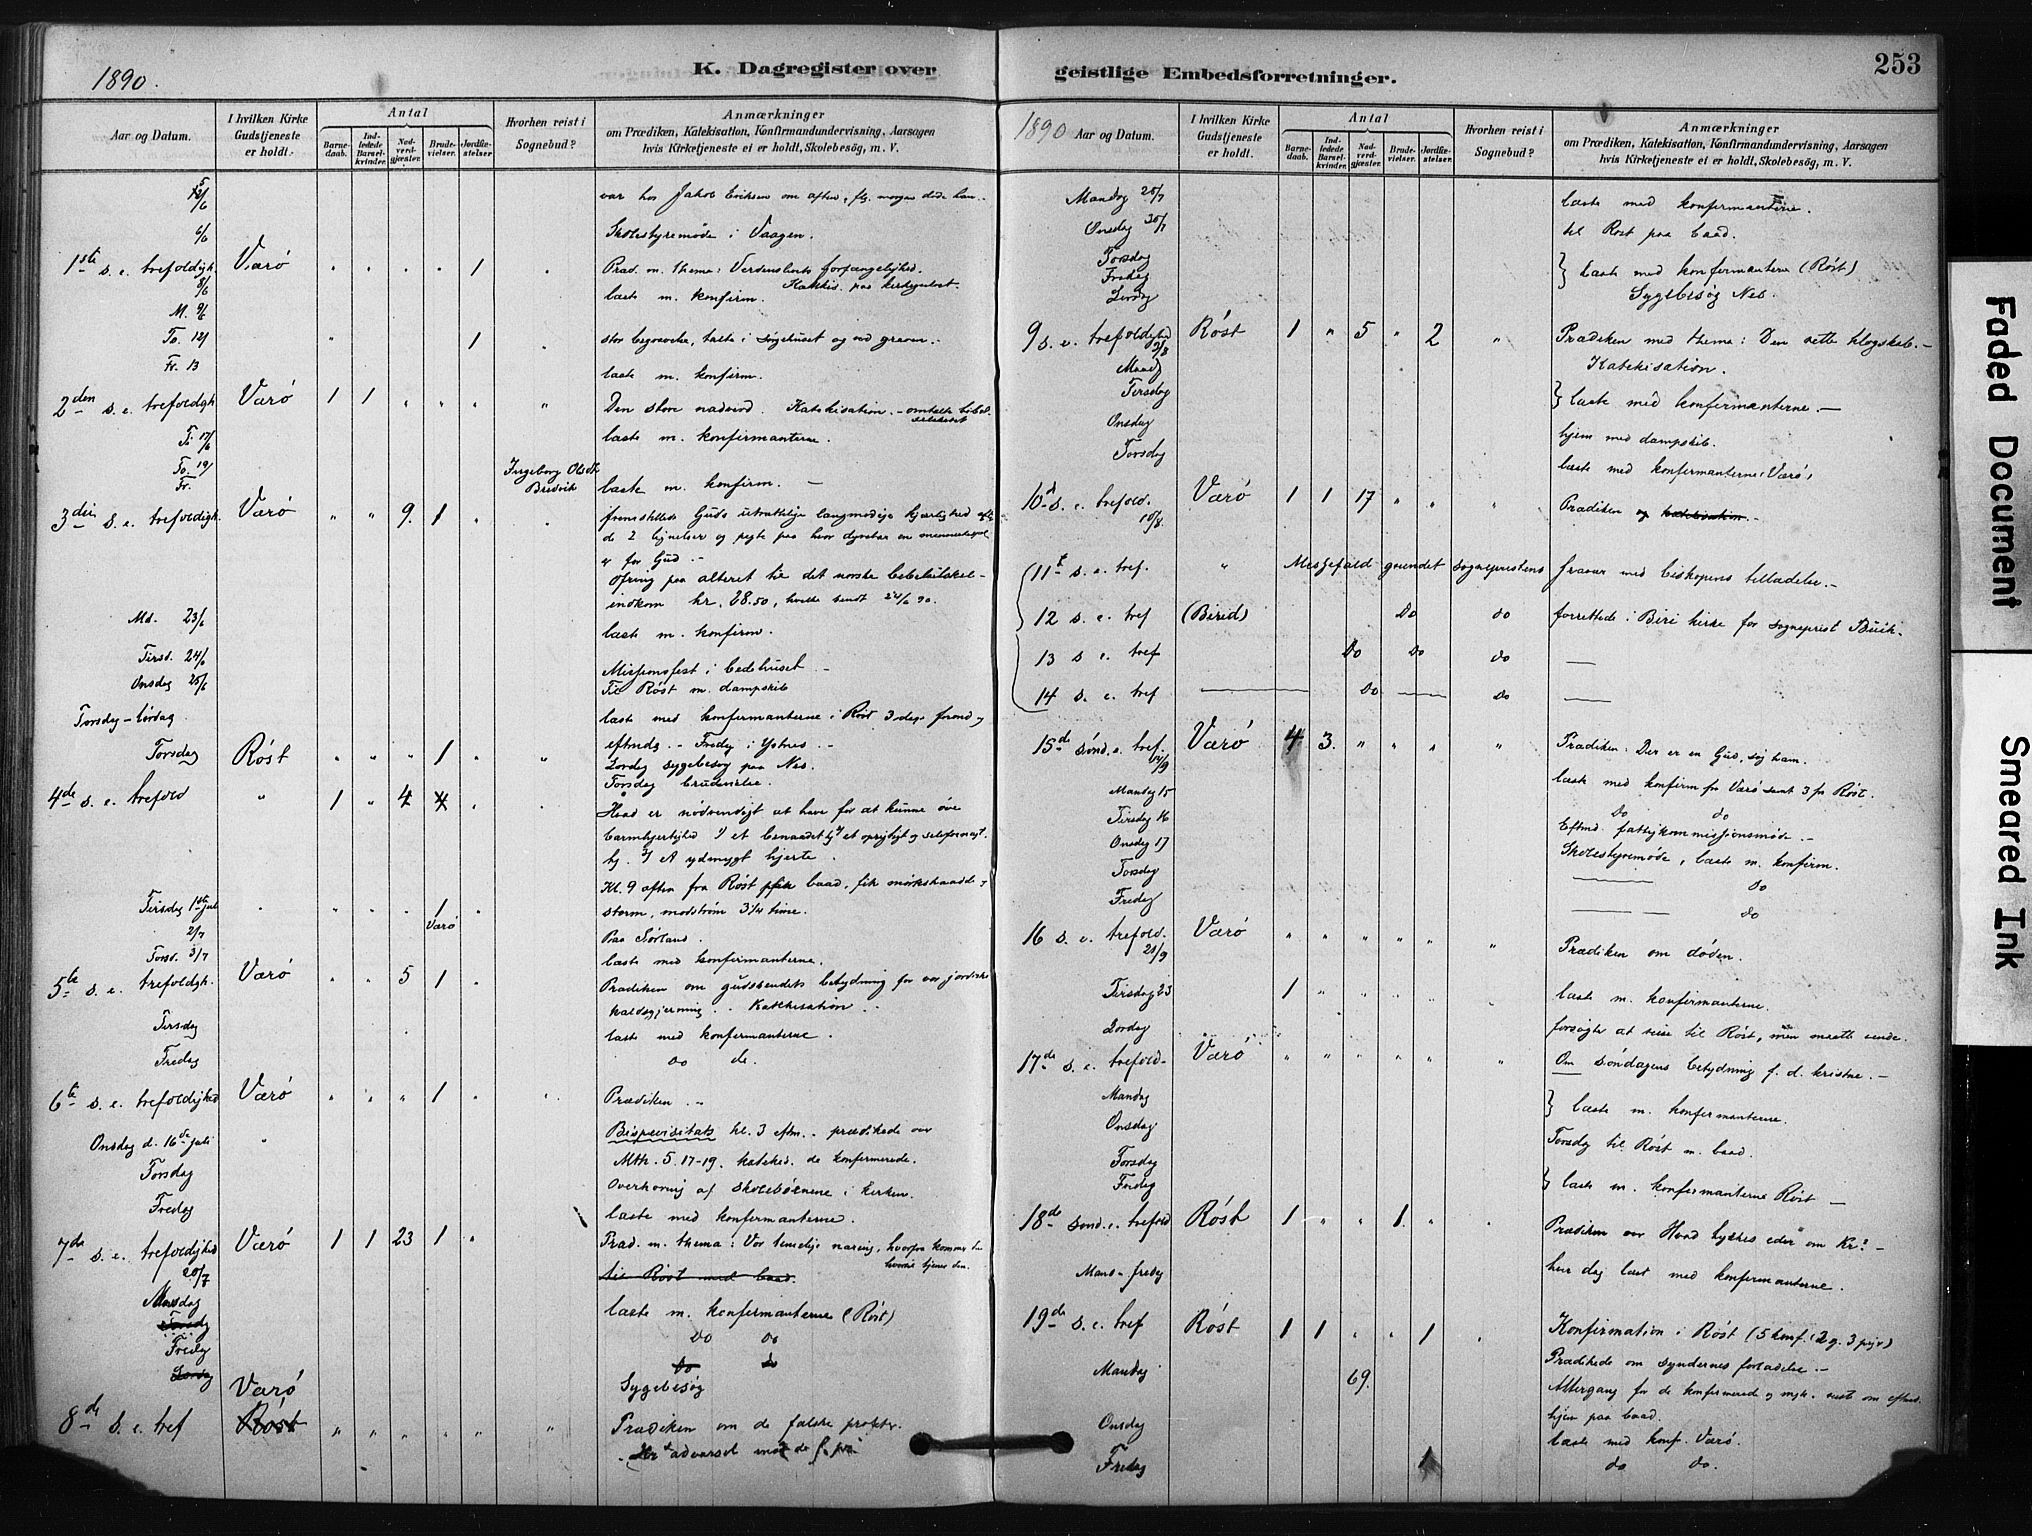 1890.
K. Dagregister over
Aar og Datum.
I hvilken Kirke Gudstjeneste er holdt.
Antal
Barnedaab.
Indledede Barselkvinder.
Nadverdgjæster.
Brudevielser.
Jordfæstelser
Hvorhen reist i Sognebud?
Anmærkninger
om Prædiken, Katekisation, Konfirmandundervisning, Aarsagen
hvis Kirketjeneste ei er holdt, Skolebesøg, m. V.
var hos Jakob Eriksen om aften, flg. morgen døde han.
6/6 Skolestyremøde i Vaagen.
1ste s. e. trefoldigh. 8/6 Værø " " " " 1 " Præd. m. thema: Verdenslivets forfængelighed.
Katekis. paa kirkegulvet.
M. 9/6 læste m. konfirm.
To. 12/ " 1 " stor begravelse, talte i sørgehuset og ved graven.
Fr. 13 læste m. konfirm.
2den s. e. trefoldgh Værø 1 1 " " " " Den store nadverd. Katekisation. -
Ti. 17/6 læste m. konfirmanterne.
To. 19/ Ingeborg Olsdt. Bredvik
Fr. læste m. konfirm. -
3die s. e. trefoldigh. Værø " " 9. 1 " " fremstillede Guds langmodige kjærlighed
de 2 lignelser og pegte paa hvor dyrebar en
for Gud -
Ofring paa alteret til det norske
indkom kr. 28.50, hvilke sendt 24/6 90.
Md. 23/6 læste m. konfirm.
Tirsd. 24/6 Missionsfest i bedehuset -
Onsdag 25/6 Til Røst m. dampskib
Torsdag - lørdag læste med konfirmanterne i Røst 3 dage formd
eftmdg. - Fredag i Ystnes. -
Torsdag Røst " " " 1 " " Lørdag sygebesøg paa Nes.
Torsdag brudevielse.
4de s. e. trefold " 1 " 4 " " Hvad er nødvendigt at have for at kunne øve
barmhjertighed 1/ et benaadet hj 2/ et oprigtigt og
hj. 3/ et ydmygt hjerte.
Kl. 9 aften fra Røst baad, fik
Tirsdag 1ste juli " " " " 1 " storm, modstrøm 3 1/4 time.
2/7 Værø Paa Sørland.
Torsd. 3/7 læste med konfirmanterne.
5te s. e. trefoldgh. Værø " " 5 1 " Prædiken om betydning for vor jordiske
kaldsgjerning. Katekisation
Tirsdag læste med konfirmanterne.
Fredag do do.
6te s. e. trefoldighed Værø " " " 1 " " Prædiken. -
Onsdag d. 16de juli " Bispevisitats kl. 3 eftm. - prædikede over
Mth. 5. 17-19. katekis. de konfirmerede.
Torsdag Overhøring af skolebørnene i kirken.
Fredag læste med konfirmanterne.
7de s. e. trefoldighed 20/7 Værø 1 1 23 1 " Præd. m. thema: Vor timelige næring, hvorfra kommer den
hvortil tjener den.
til Røst med baad.
Mandag læste m. konfirmanterne (Røst)
Torsdag
Fredag do do
Lørdag do do
Sygebesøg
8de s. e. tref Værø Røst " " " " " " Prædiken om de falske profeter.
advarsel mod de f. pr.
geistlige Embedsforretninger.
253
1890
Aar og Datum.
I hvilken Kirke Gudstjeneste er holdt.
Antal
Barnedaab.
Indledede Barselkvinder.
Nadverdgjæster.
Brudevielser.
Jordfæstelser.
Hvorhen reist i Sognebud?
Anmærkninger
om Prædiken, Katekisation, Konfirmandundervisning, Aarsagen
hvis Kirketjeneste ei er holdt, Skolebesøg, m. V.
Mandag 28/7 læste med konfirmanterne.
Onsdag 30/7 til Røst paa baad.
Torsdag
Fredag } læste med konfirmanterne (Røst)
Lørdag Sygebesøg Nes.
9 s. e. trefoldighed 3/8 Røst 1 " 5 " 2 " Prædiken med thema: Den rette klogskab. -
Katekisation.
Mandag
Tirsdag } læste med konfirmanterne. -
Onsdag hjem med dampskib.
Torsdag læste med konfirmanterne i Værø,
10de s. e. trefold. 10/8. Værø 1 1 17 " " " Prædiken og katekisation. -
11te s. e. tref. " Messefald grundet sogneprestens fravær med biskopens tilladelse. -
12 s. e. tref (Birid) Do do forrettede i Biri kirke for sogneprest
13 s. e. tref Do Do do —
14 s. e. tref — Do — do —
15de sønd. e. tref. 14/9 Værø 4. 3. " " " " Prædiken: Der er en Gud, søg ham.
Mandag 15 læste med konfirm fra Værø samt 3 fra Røst.
Tirsdag 16 do do
Eftmd. fattigkommissionsmøde. -
Onsdag 17 Skolestyremøde, læste m. konfirm.
Torsdag — do
Fredag — — do
16 s. e. trefold. 21/9 Værø " " " " " " Prædiken om døden.
Tirsdag 23 1 " " " " læste m. konfirmanterne.
Lørdag forsøgte at reise til Røst, men maatte vende.
17de s. e. trefold- Værø " " " " " " Om søndagens betydning f. d. kristne. -
Mandag
Onsdag } læste m. konfirmanterne.
Torsdag Torsdag til Røst m. baad.
Fredag } læste m. konfirmanterne Røst -
18de sønd. e. trefold Røst 1 " " 1. " " Prædiken over Hvad tykkes eder om Kr? -
Mand - fredag hver dag læst med konfirmanterne.
19de s. e. tref Røst 1 1 " " 1 " Konfirmation i Røst (5 konf. (2 g. 3 piger)
Prædikede om syndernes forladelse. -
Mandag 69. Altergang for de konfirmerede og
hjem paa baad.
Onsdag læste med konf. Værø.
Fredag 1 do do.
Faded Document
Smeared Ink